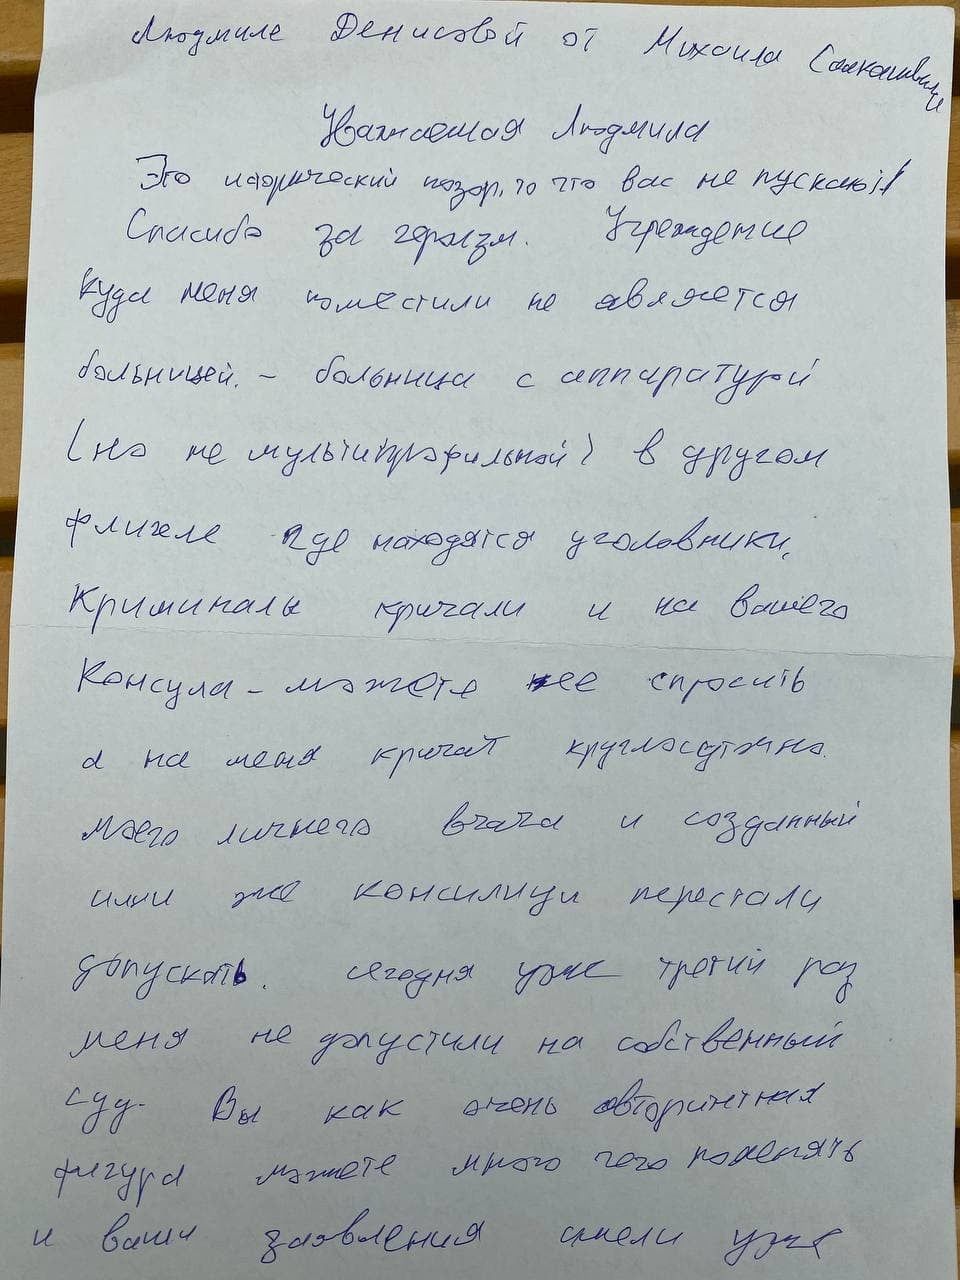 Людмиле Денисовой от Михаила Саакашвили
Уважаемая Людмила
Это исторический позор, то что вас не пускают!
Спасибо за героизм. Учреждение
куда меня поместили не является
больницей. - больница с аппаратурой
(но не мультипрофильной) в другом
флигеле где находятся уголовники.
Криминалы кричали и на вашего
Консула - можете ее спросить
а на меня кричат круглосуточно.
моего личного врача и созданный
ими же консилиум перестали
допускать. сегодня уже третий раз
меня не допустили на собственный
суд. Вы как очень авторитетная
фигура можете много чего поменять
и ваши заявления имели уже